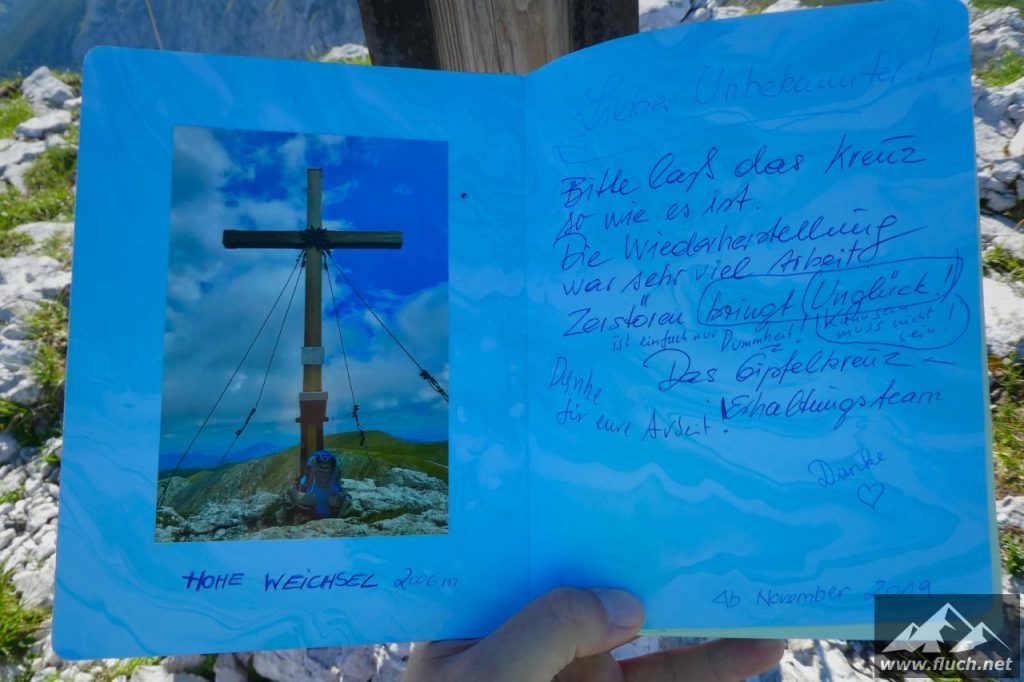 HOHE WEICHSEL 2006m
Lieber Unbekannter!
Bitte laß das Kreuz
so wie es ist.
Die Wiederherstellung
war sehr viel Arbeit
Zerstören bringt Unglück!
ist einfach nur Dummheit!
muss nicht
sein!
Das Gipfelkreuz-
Erhaltungsteam
Danke
für eure Arbeit!
Danke
♡
Ab November 2019
www.fluch.net